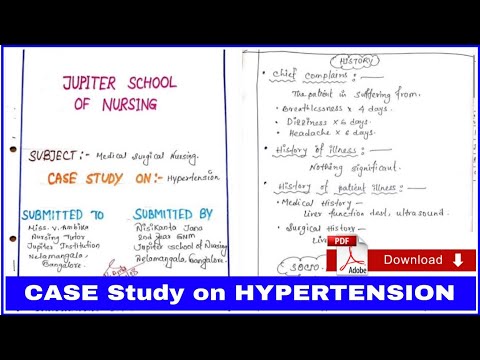 JUPITER SCHOOL
OF NURSING
SUBJECT:- Medical Surgical Nursing.
CASE STUDY ON:- Hypertension
SUBMITTED TO
Miss. V. Ambika
Nursing Tutor
Jupiter Institution
Nelamangala,
Bangalore.
SUBMITTED BY
Nisikanta Jana
2nd Year GNM
Jupiter school of Nursing
Nelamangala, Bangalore.
HISTORY
Chief Complains:-
The patient is suffering from.
Breathlessness x 4 days.
Dizziness x 6 days.
Headache x 6 days.
History of illness:-
Nothing significant.
History of patient illness:-
Medical History -
Liver function test, ultrasound.
Surgical History -
SOCIO
PDF
Adobe
Download
CASE Study on HYPERTENSION